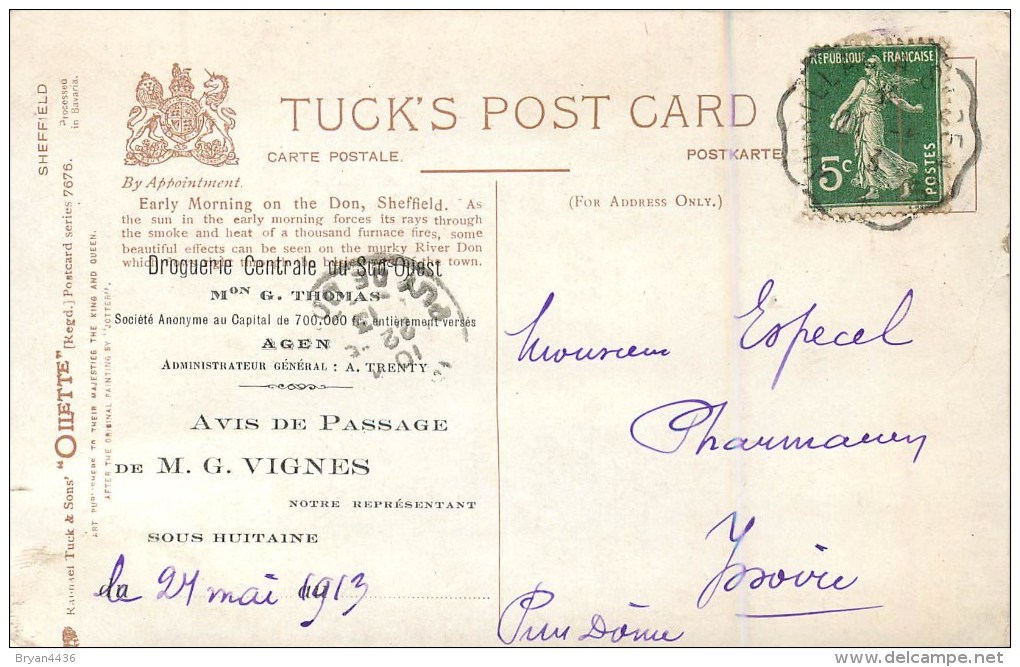 SHEFFIELD
Processed
in Bavaria.
Raphael Tuck & Sons' "OILETTE" [Regd.] Postcard series 7676.
ART PUBLISHERS TO THEIR MAJESTIES THE KING AND QUEEN.
AFTER THE ORIGINAL PAINTING BY "JOTTER".
TUCK'S POST CARD
CARTE POSTALE.
POSTKARTE
By Appointment.
(FOR ADDRESS ONLY.)
REPUBLIQUE FRANÇAISE
5c
POSTES
Early Morning on the Don, Sheffield. As
the sun in the early morning forces its rays through
the smoke and heat of a thousand furnace fires, some
beautiful effects can be seen on the murky River Don
which right through the of the town.
Droguerie Centrale du Sud-Ouest
MON G. THOMAS
Société Anonyme au Capital de 700.000 fr. entièrement versés
AGEN
ADMINISTRATEUR GÉNÉRAL : A. TRENTY
AVIS DE PASSAGE
DE M. G. VIGNES
NOTRE REPRÉSENTANT
SOUS HUITAINE
le 24 mai 1913
Monsieur Especel
Pharmacien
Issoire
Puy Dôme
Bryan4436
http://www.delcampe.net